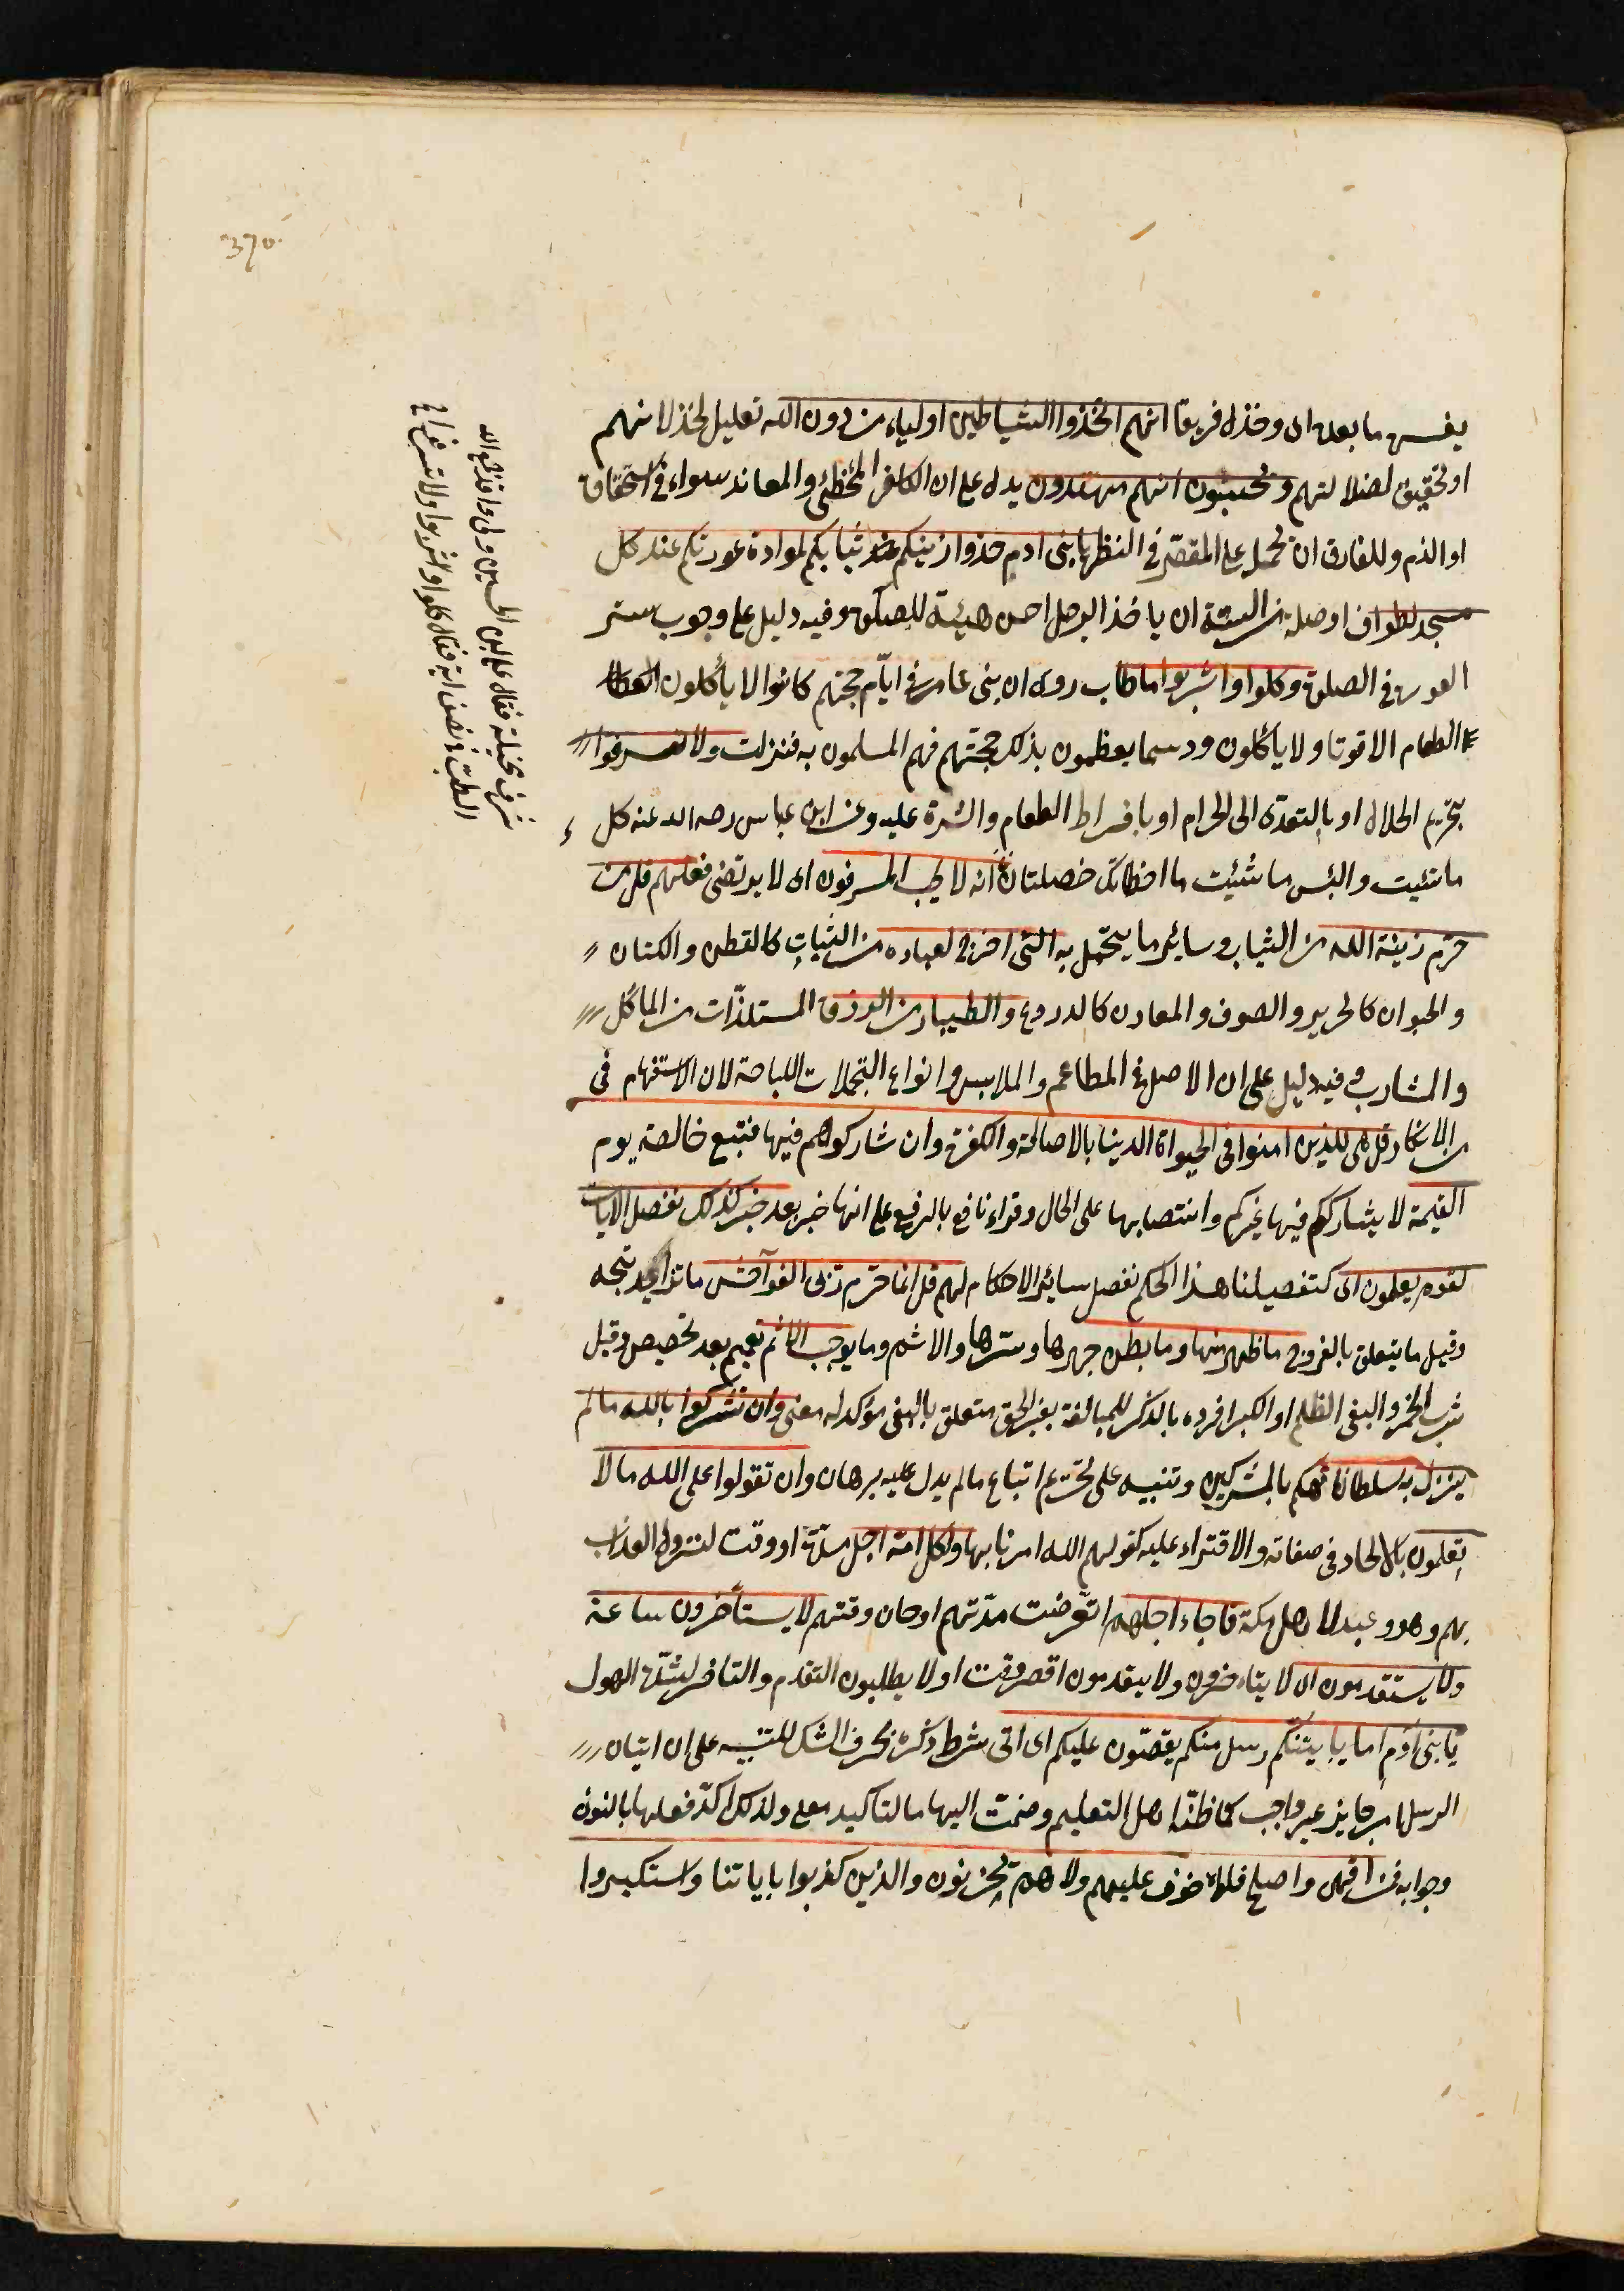 370
يفسره ما بعده اى وخذل فريقا انهم اتخذوا الشياطين اولياء من دون الله تعليل لخذلانهم
او تحقيق لضلالتهم ويحسبون انهم مهتدون يدل على ان الكافر المخطئ والمعاند سواء فى استحقاق
او الذم وللفارق ان يحمل على المقصر فى النظر يا بنى ادم خذوا زينتكم ثيابكم لمواداة عورتكم عند كل
مسجد لطواف او صلوة من السنة ان ياخذ الرجل احسن هيئة للصلوة وفيه دليل على وجوب ستر
العورة فى الصلوة وكلوا واشربوا ما طاب روى ان بنى عامر فى ايّام حجتهم كانوا لا يأكلون
الطعام الا قوتا ولا ياكلون ودسما يعظمون بذلك حجتهم فهم المسلمون به فنزلت ولا تسرفوا
بتحريم الحلال او بالتعدى الى الحرام او بافراط الطعام والشره عليه وعن ابن عباس رضى الله عنه كل
ما شئيت والبس ما شئيت ما اخطاتك خصلتان انه لا يحب المسرفون اى لا يرتضى فعلهم قل من
حرّم زينة الله من الثياب وسائر ما يتجمّل به التى اخرج لعباده من النبات كالقطن والكتان
والحيوان كالحرير والصوف والمعادن كالدروع والطيبات من الرزق المستلذّات من الماكل
والمشارب وفيه دليل على ان الاصل فى المطاعم والملابس وانواع التجملات اللباحة لان الاستفهام فى
من الانكار قل هى للذين امنوا فى الحيواة الدينا بالاصالة والكفرة وان شاركوهم فيها فتبع خالصة يوم
القيمة لا يشارككم فيها غيركم وانتصابها على الحال وقراء نافع بالرفع على انها خبر بعد خبر كذلك نفصل الايات
لقوم يعلمون اى كتفصيلنا هذا الحكم نفصل سائر الاحكام لهم قل انما حرّم ربى الفواحش ما تزايد قبحه
وقيل ما يتعلق بالفروج ما ظهر منها وما بطن جهرها وسرّها والاثم وما يوجب الاثم تعميم بعد تخصيص وقيل
شرب الخمر والبغى الظلم او الكبر افرده بالذكر للمبالغة بغير الحق متعلق بالبغى مؤكد له معنى وان تشركوا بالله ما لم
ينزل به سلطانا تهكم بالمشركين وتنبيه على تحريم اتباع ما لم يدل عليه برهان وان تقولوا على الله ما لا
تعلمون بالالحاد فى صفاته والافتراء عليه كقولهم الله امرنا بها ولكل امة اجل مدة او وقت لنزول العذاب
بهم وهو وعيد لاهل مكة فاجاء اجلهم انقرضت مدّتهم او حان وقتهم لا يستأخرون ساعة
ولا يستقدمون اى لا يتاءخرون ولا يتقدمون اقصر وقت او لا يطلبون التقدم والتاخر لشدّة الهول
يا بنى آدم اما ياتينّكم رسل منكم يقصّون عليكم اى اتى شرط ذكره بحرف الشك للتنبيه على ان اتيان
الرسل امر جايز غير واجب كما ظنّه اهل التعليم وضمت اليها ما لتاكيد معنى ولذلك اكّد فعلها بالنون
وجوابه فمن اتقى واصلح فلا خوف عليهم ولا هم يحزنون والذين كذبوا باياتنا واستكبروا
سرف ومخيلة فقال على بن الحسين ولى واقد جمع الله
الطب فى نصف اية فقال كلوا واشربوا ولا تسرفوا